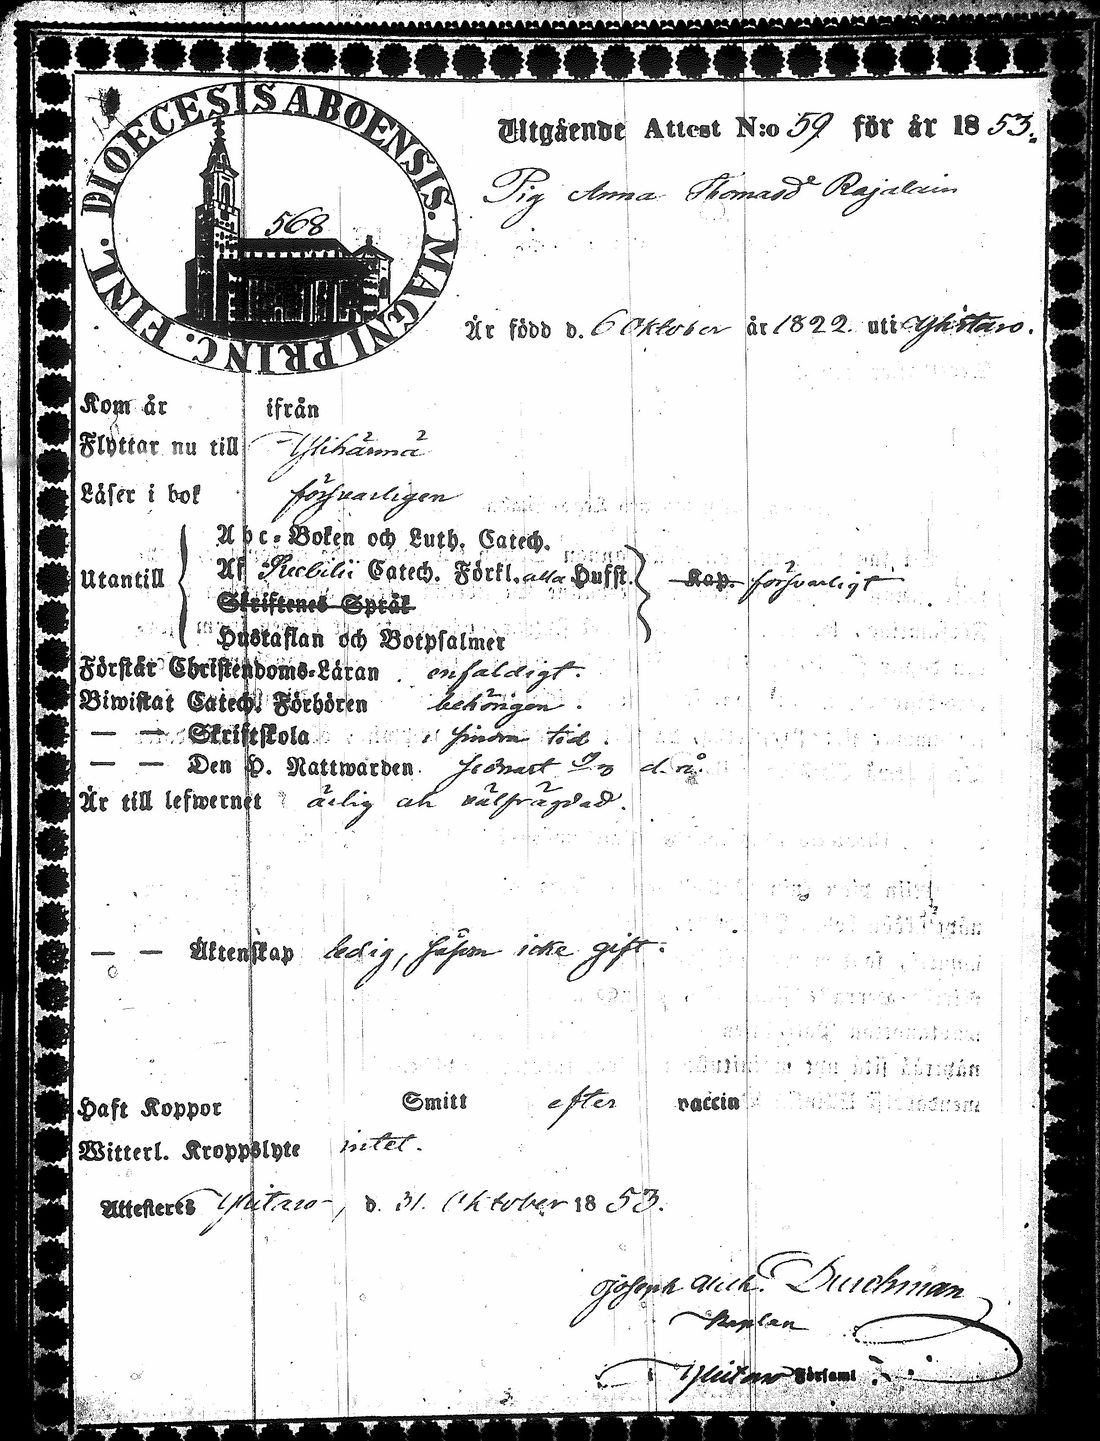 DIOECESIS ABOENSIS. MAGNI PRINC. FINL.
568
Utgående Attest N:o 59 för år 1853.
Pig Anna Thomasd Rajalain
Är född d. 6 Oktober år 1822. uti Ylistaro.
Kom år ifrån
Flyttar nu till Ylihärmä
Läser i bok försvarligen
Utantill
Abc-Boken och Luth. Catech.
Af Catech. Förkl. alla Hufst.
Skriftenes Språk
Hustaflan och Botpsalmer
Kap. försvarligt
Förstår Christendoms-Läran enfaldigt.
Biwistat Catech. Förhören behörigen.
— — Skriftskola sin tid.
— — Den H. Nattwarden senast d. å.
Är till lefwernet ärlig och välfrägdad.
— — Äktenskap ledig, såsom icke gift.
Haft Koppor Smitt efter vaccin
Witterl. Kroppslyte intet.
Attesteres Ylistaro, d. 31. Oktober 1853.
Joseph
Kaplan
i Ylistaro Församl